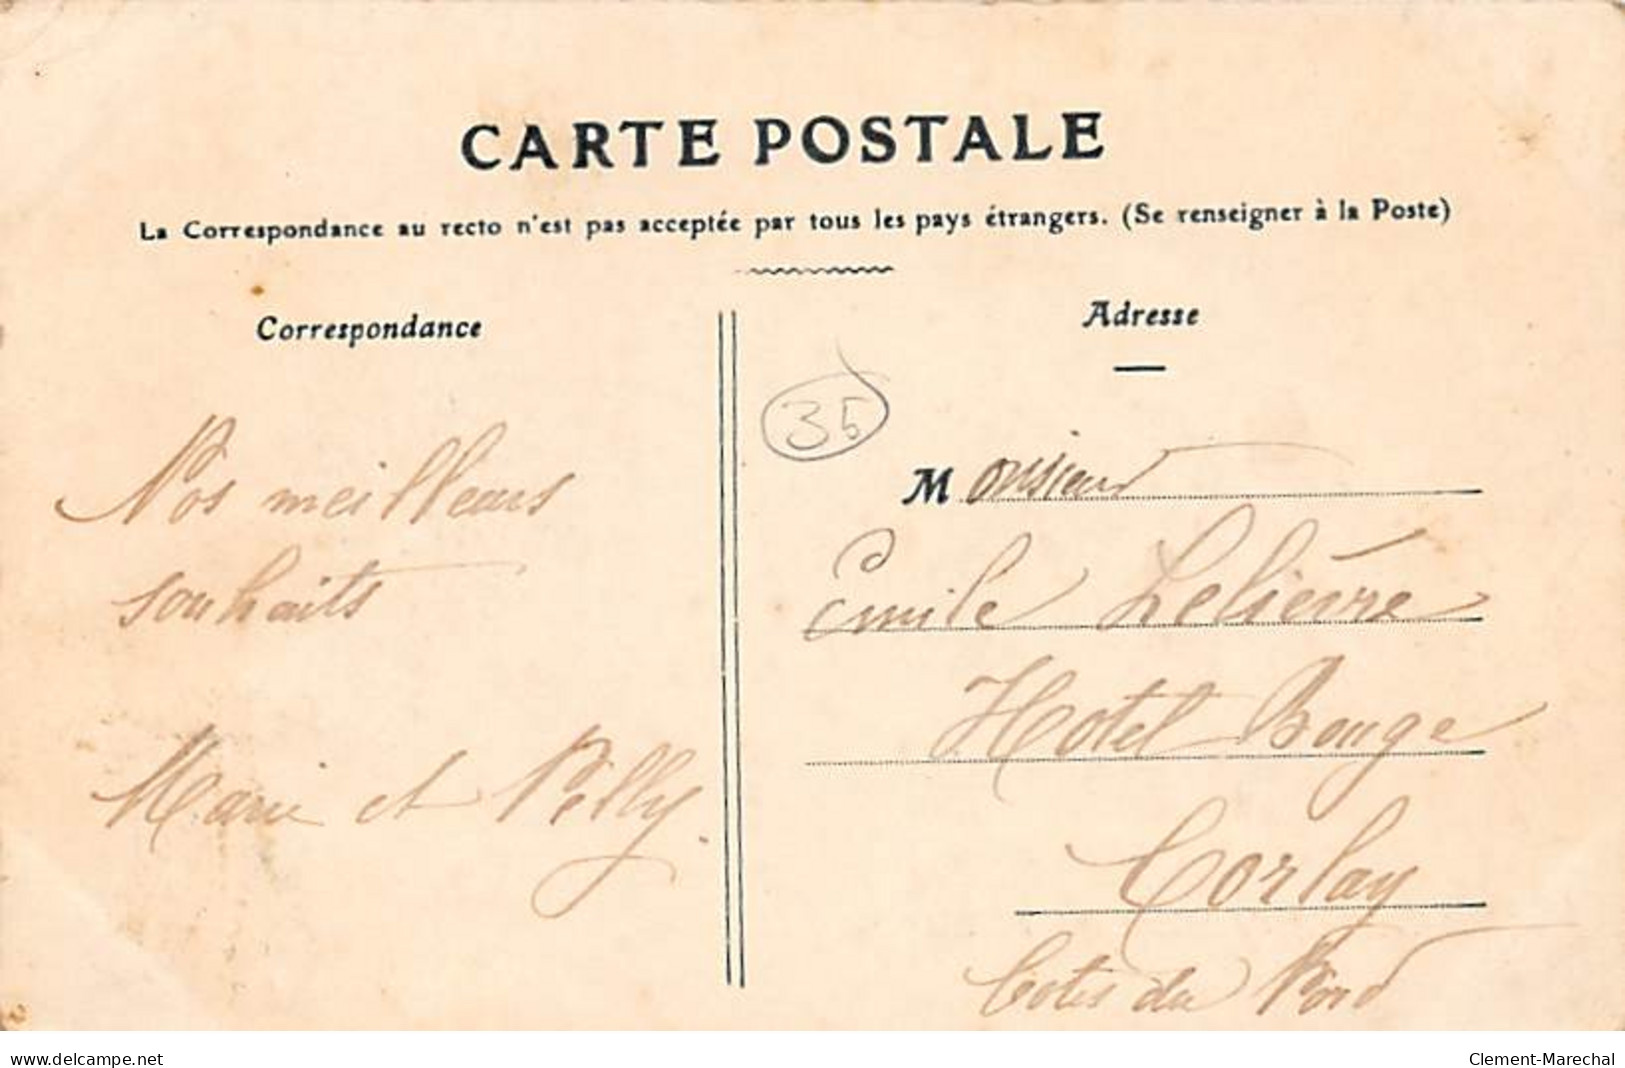 CARTE POSTALE
La Correspondance au recto n'est pas acceptée par tous les pays étrangers. (Se renseigner à la Poste)
Correspondance
Nos meilleurs
souhaits
Marie et Pelly.
Adresse
35
Monsieur
Emile Lelièvre
Hotel Bouge
Corlay
Cotes du Nord
www.delcampe.net
Clement-Marechal